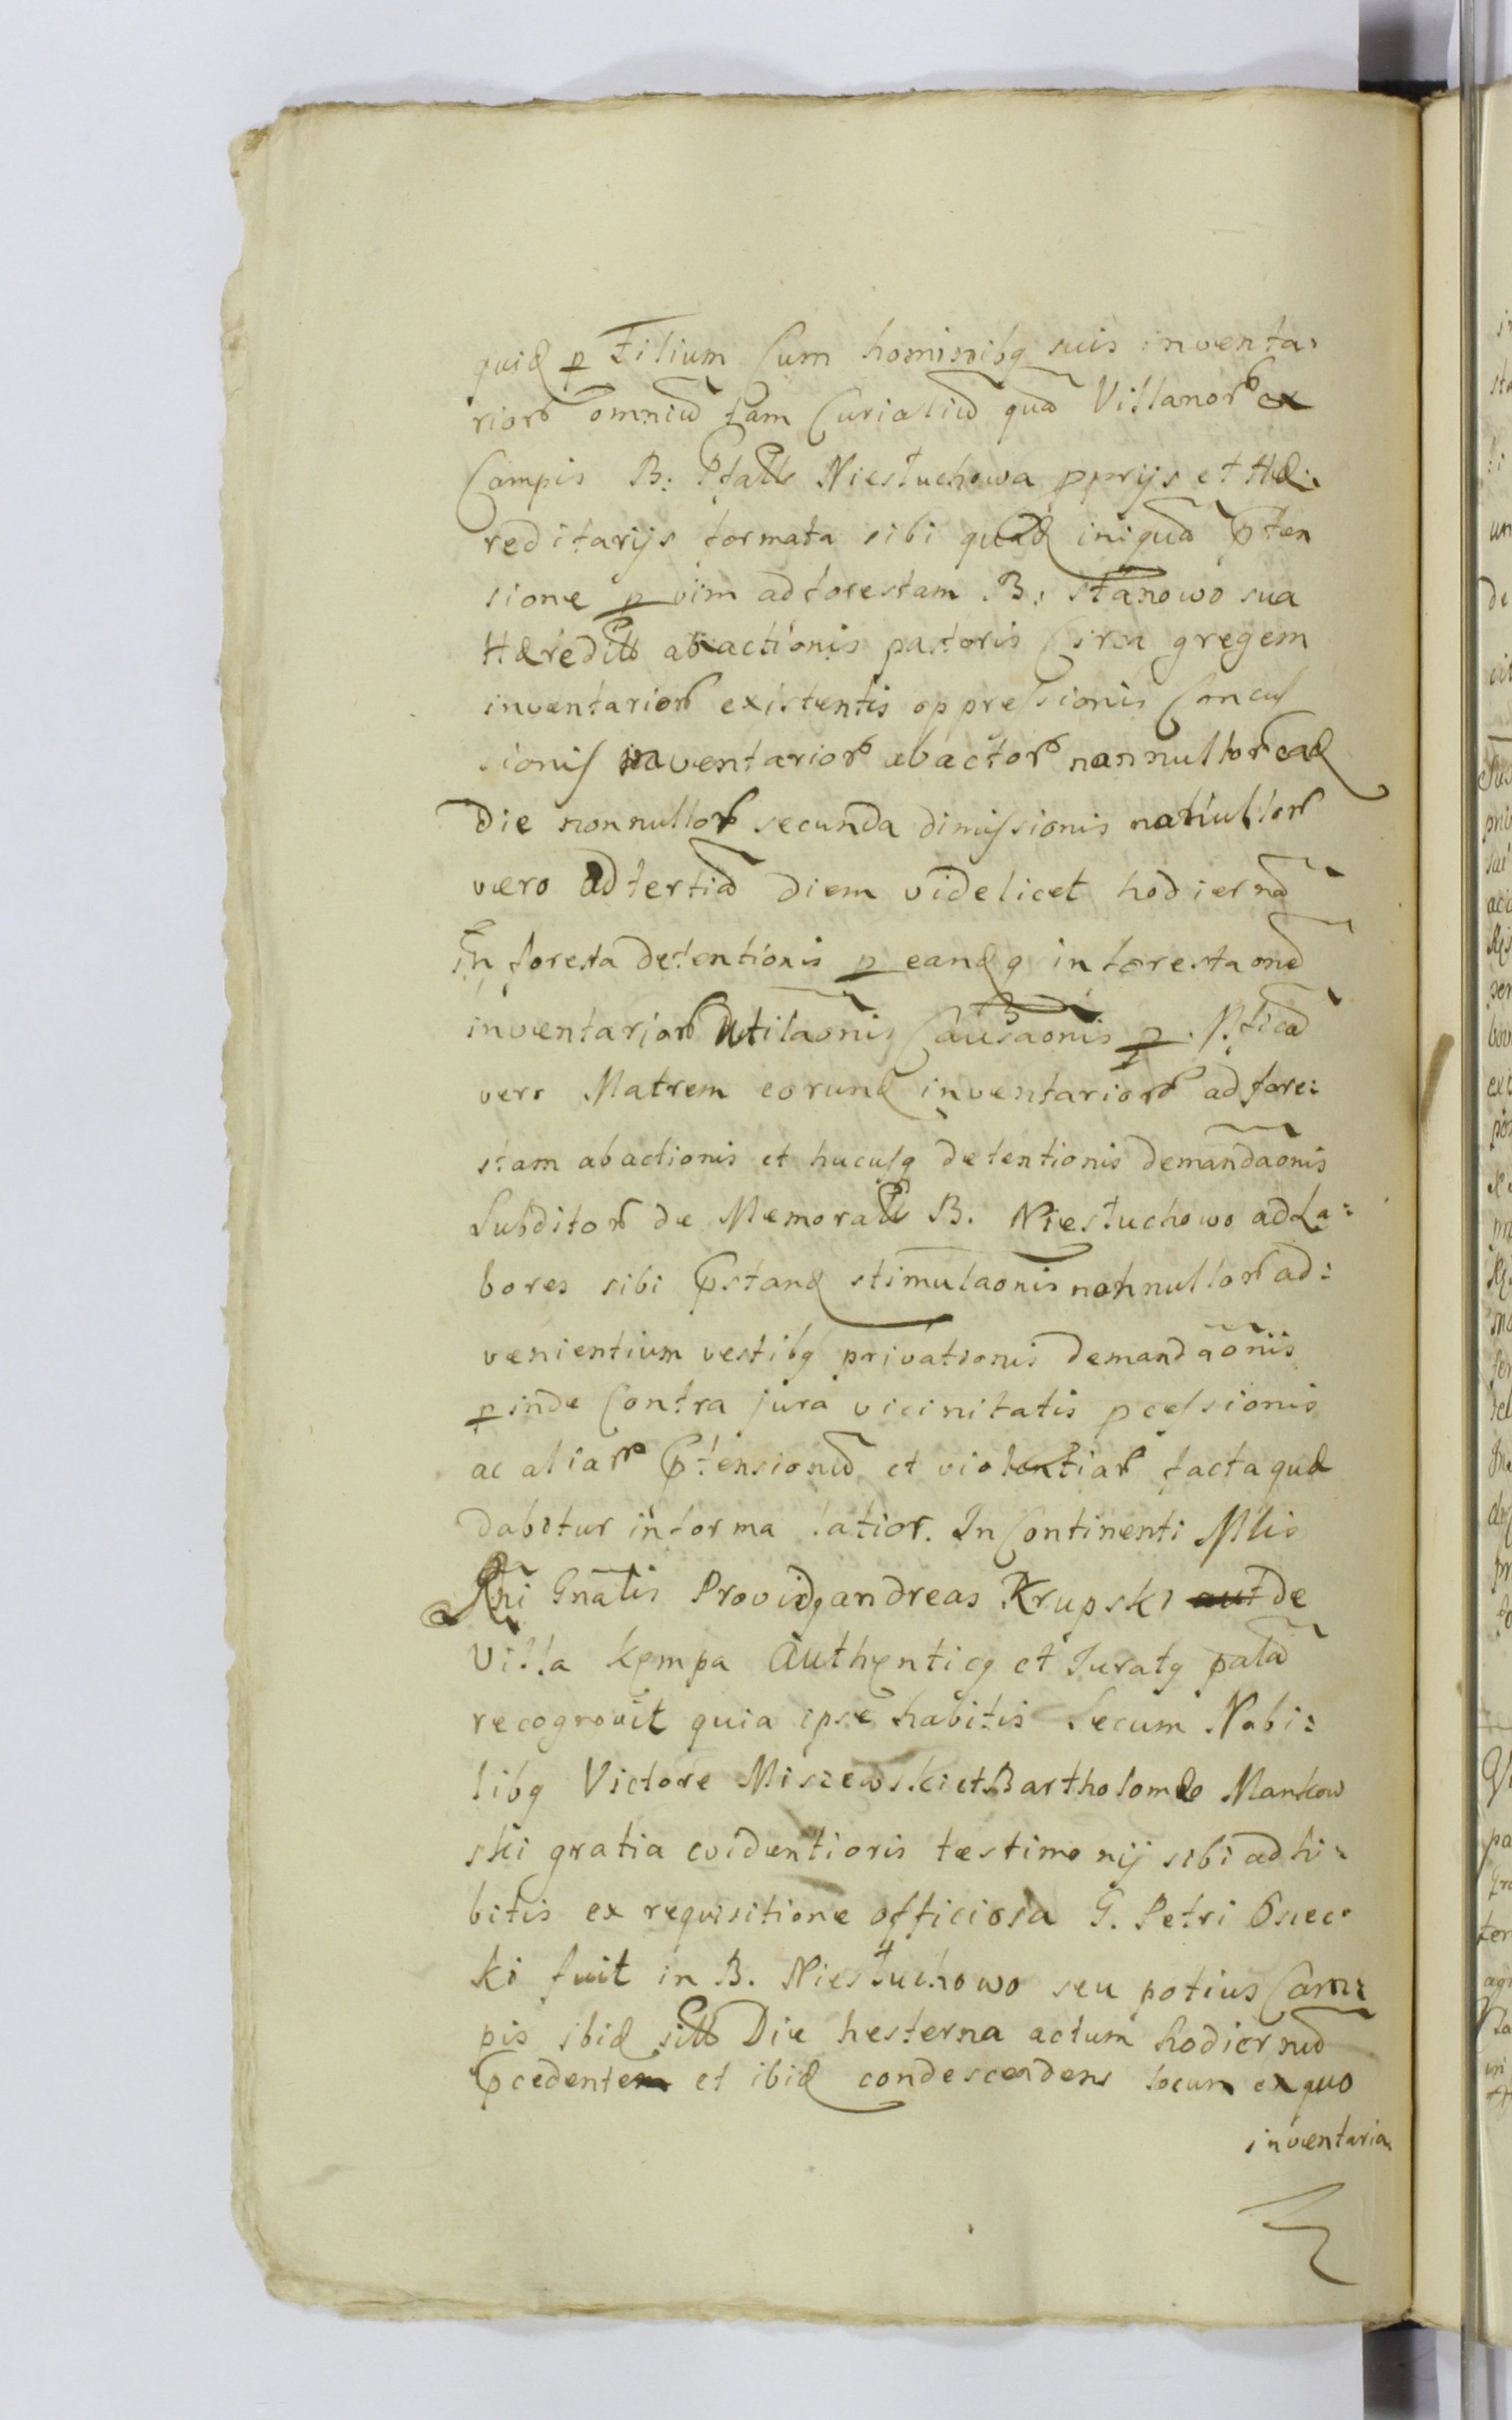 quid p Filium Cum hominibq suis inventa:
rior omniu tam Curialiu qua Villanor ex
Campis B: Ptatt Niesłuchowa pprijs et Hæ:
reditarijs formata sibi quad iniqua pten
sione p vim ad forestam B: Stanowo sua
Hæredit abactionis pastoris Circa gregem
inventarior existentis oppressionis Concus
sionis inventarior abactor nonnullor ead
die nonnullor secunda dimissionis nonnullor
vero ad tertia diem videlicet hodierna
In foresta detentionis p eandq in foresta ond
inventarior Mutilaonis Causaonis p Pftica
vero Matrem eorund inventarior ad fore:
stam abactionis et hucusq detentionis demandaonis
Subditor de Memoratt B. Niesłuchowo ad La:
bores sibi pstand stimulaonis nonnullor ad:
venientium vestibq privationis demandaonis
pinde Contra jura vicinitatis pcessionis
ac aliar ptensionu et violentiar facta quæ
dabitur in forma latior. In Continenti Mlis
Rni Gnalis Providq andreas Krupski aut de
Villa kempa Authenticq et Juratq pala
recognovit quia ipse habitis Secum Nobi:
libq Victore Miszewski et Bartholomæo Mankow
ski gratia evidentioris testimonij sibi adhi:
bitis ex requisitione officiosa G. Petri Osiec:
ki fuit in B. Niesłuchowo seu potius Cam:
pis ibid sitt Die hesterna actum hodiernu
pcedentem et ibid condescendens locum ex quo
inventaria